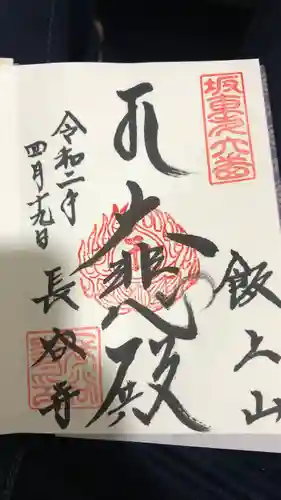 坂東第六番
飯上山
大悲殿
令和二年
四月十九日
長谷寺